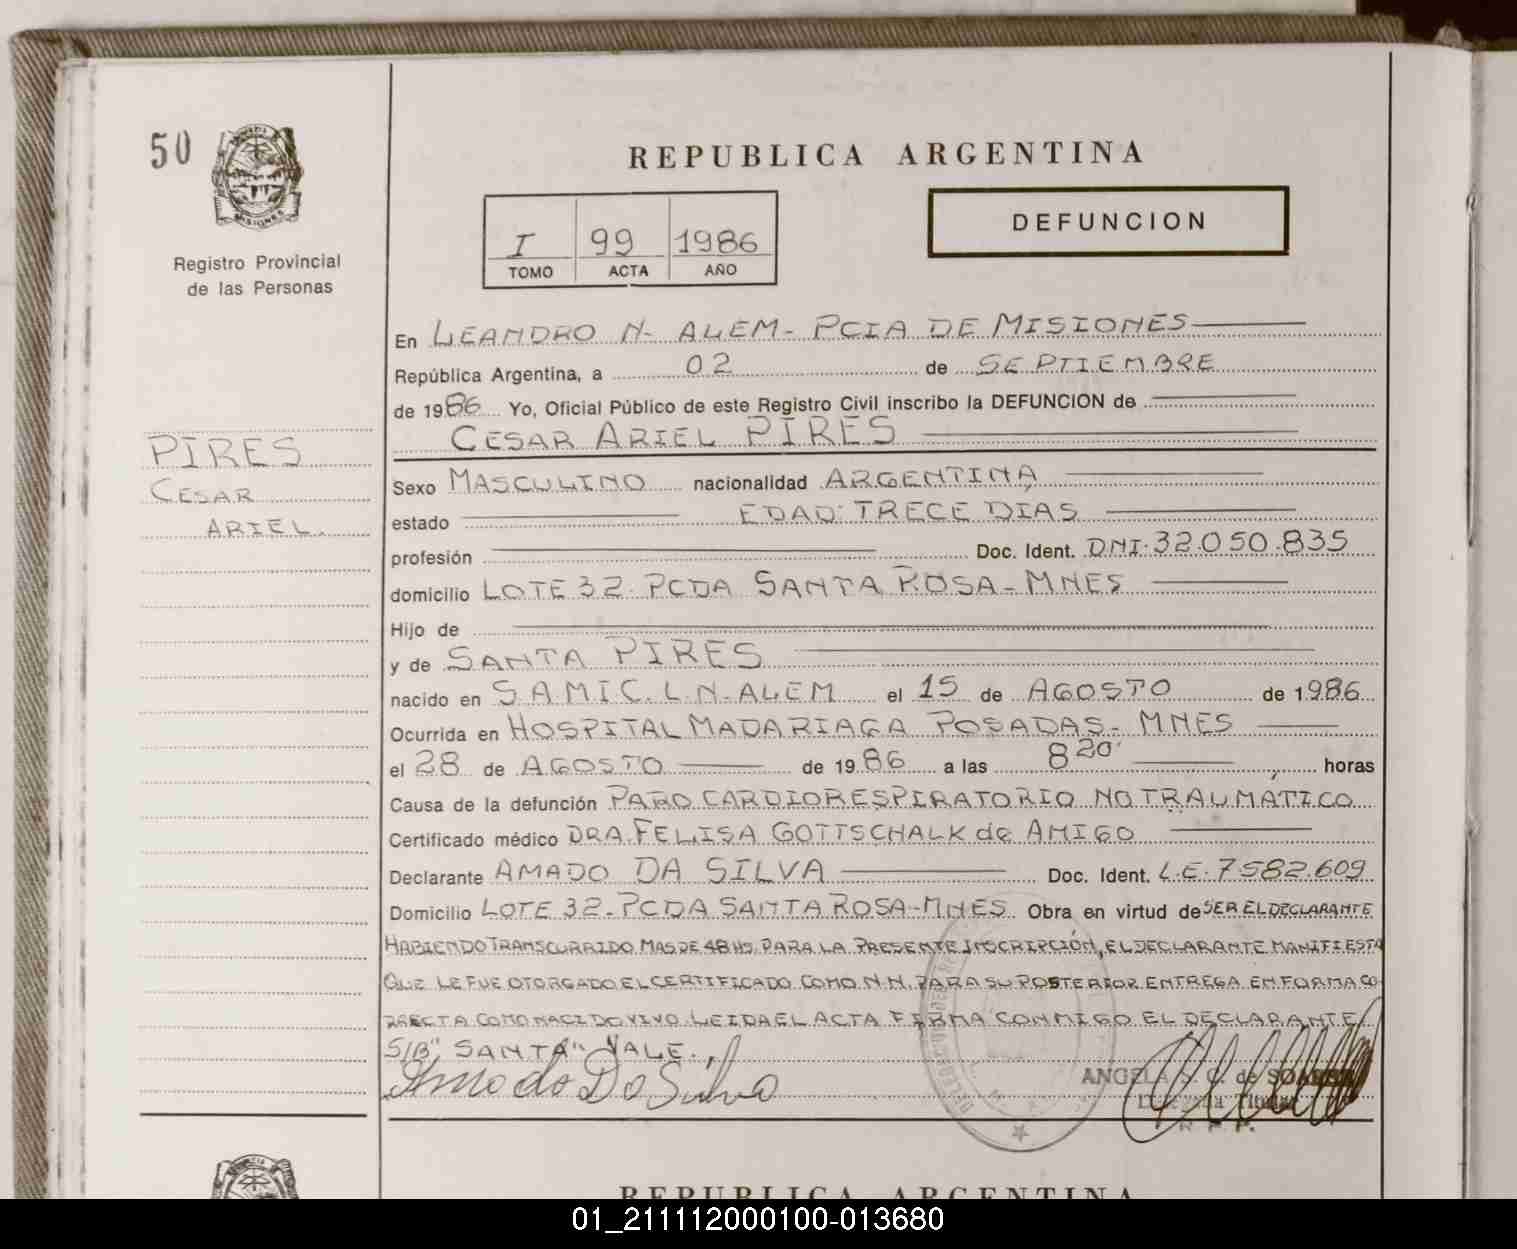 50
Registro Provincial
de las Personas
PIRES
CESAR
ARIEL.
REPUBLICA ARGENTINA
I 99 1986
TOMO ACTA AÑO
DEFUNCION
En LEANDRO N- ALEM- PCIA DE MISIONES
República Argentina, a 02 de SEPTIEMBRE
de 1986 Yo, Oficial Público de este Registro Civil inscribo la DEFUNCION de
CESAR ARIEL PIRES
Sexo MASCULINO nacionalidad ARGENTINA
estado EDAD: TRECE DIAS
profesión Doc. Ident. DNI-32.050.835
domicilio LOTE 32- PCDA SANTA ROSA- MNES
Hijo de
y de SANTA PIRES
nacido en S.A.M.I.C. L.N-ALEM el 15 de AGOSTO de 1986
Ocurrida en HOSPITAL MADARIAGA POSADAS- MNES
el 28 de AGOSTO de 1986 a las 8 20' horas
Causa de la defunción PARO CARDIORESPIRATORIO NO TRAUMÁTICO
Certificado médico DRA. FELISA GOTTSCHALK de AMIGO
Declarante AMADO DA SILVA Doc. Ident. L.E. 7582.609
Domicilio LOTE 32- PCDA SANTA ROSA-MNES Obra en virtud de SER EL DECLARANTE
HABIENDO TRANSCURRIDO MAS DE 48 HS. PARA LA PRESENTE INSCRIPCIÓN, EL DECLARANTE MANIFIESTA
QUE LE FUE OTORGADO EL CERTIFICADO COMO N.N. PARA SU POSTERIOR ENTREGA EN FORMA CO
RRECTA COMO NACIDO VIVO. LEIDA EL ACTA FIRMA CONMIGO EL DECLARANTE
S/B" SANTA" VALE.,
Amado Da Silva
ANGELA S. C. de SOARES
Titular
R. P. P.
REPUBLICA ARGENTINA
01_211112000100-013680